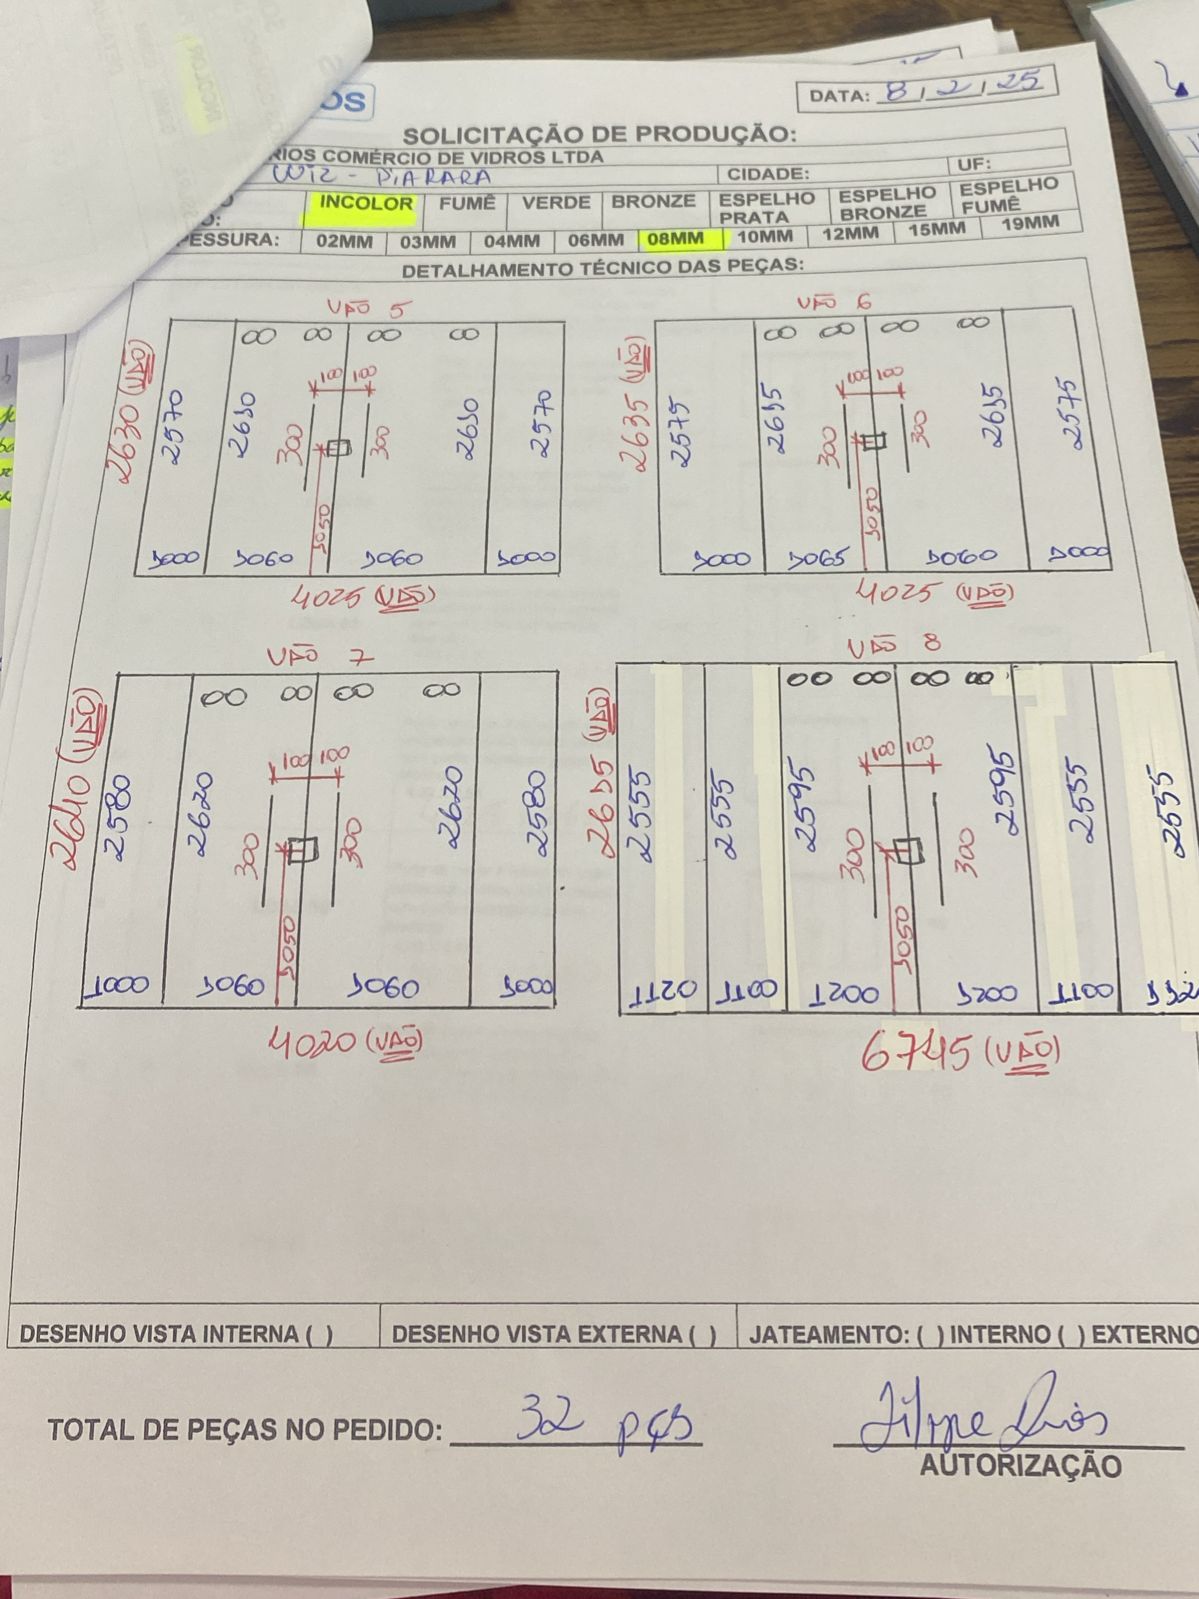 OS
DATA: 8 / 2 / 25
SOLICITAÇÃO DE PRODUÇÃO:
RIOS COMÉRCIO DE VIDROS LTDA
PIARARA CIDADE: UF:
O: INCOLOR FUMÊ VERDE BRONZE ESPELHO PRATA ESPELHO BRONZE ESPELHO FUMÊ
PESSURA: 02MM 03MM 04MM 06MM 08MM 10MM 12MM 15MM 19MM
DETALHAMENTO TÉCNICO DAS PEÇAS:
VÃO 5
2630 (VÃO)
2570 2610 300 100 100 300 2610 2570
1000 1060 1050 1060 1000
4025 (VÃO)
VÃO 6
2635 (VÃO)
2575 2615 300 100 100 300 2615 2575
1000 1065 1050 1060 1000
4025 (VÃO)
VÃO 7
2640 (VÃO)
2580 2620 300 100 100 300 2620 2580
1000 1060 1050 1060 1000
4020 (VÃO)
VÃO 8
2615 (VÃO)
2555 2555 2595 300 100 100 300 2595 2555 2555
1120 1100 1200 1050 1200 1100
6745 (VÃO)
DESENHO VISTA INTERNA ( ) DESENHO VISTA EXTERNA ( ) JATEAMENTO: ( ) INTERNO ( ) EXTERNO
TOTAL DE PEÇAS NO PEDIDO: 32 pçs
Filipe Rios
AUTORIZAÇÃO